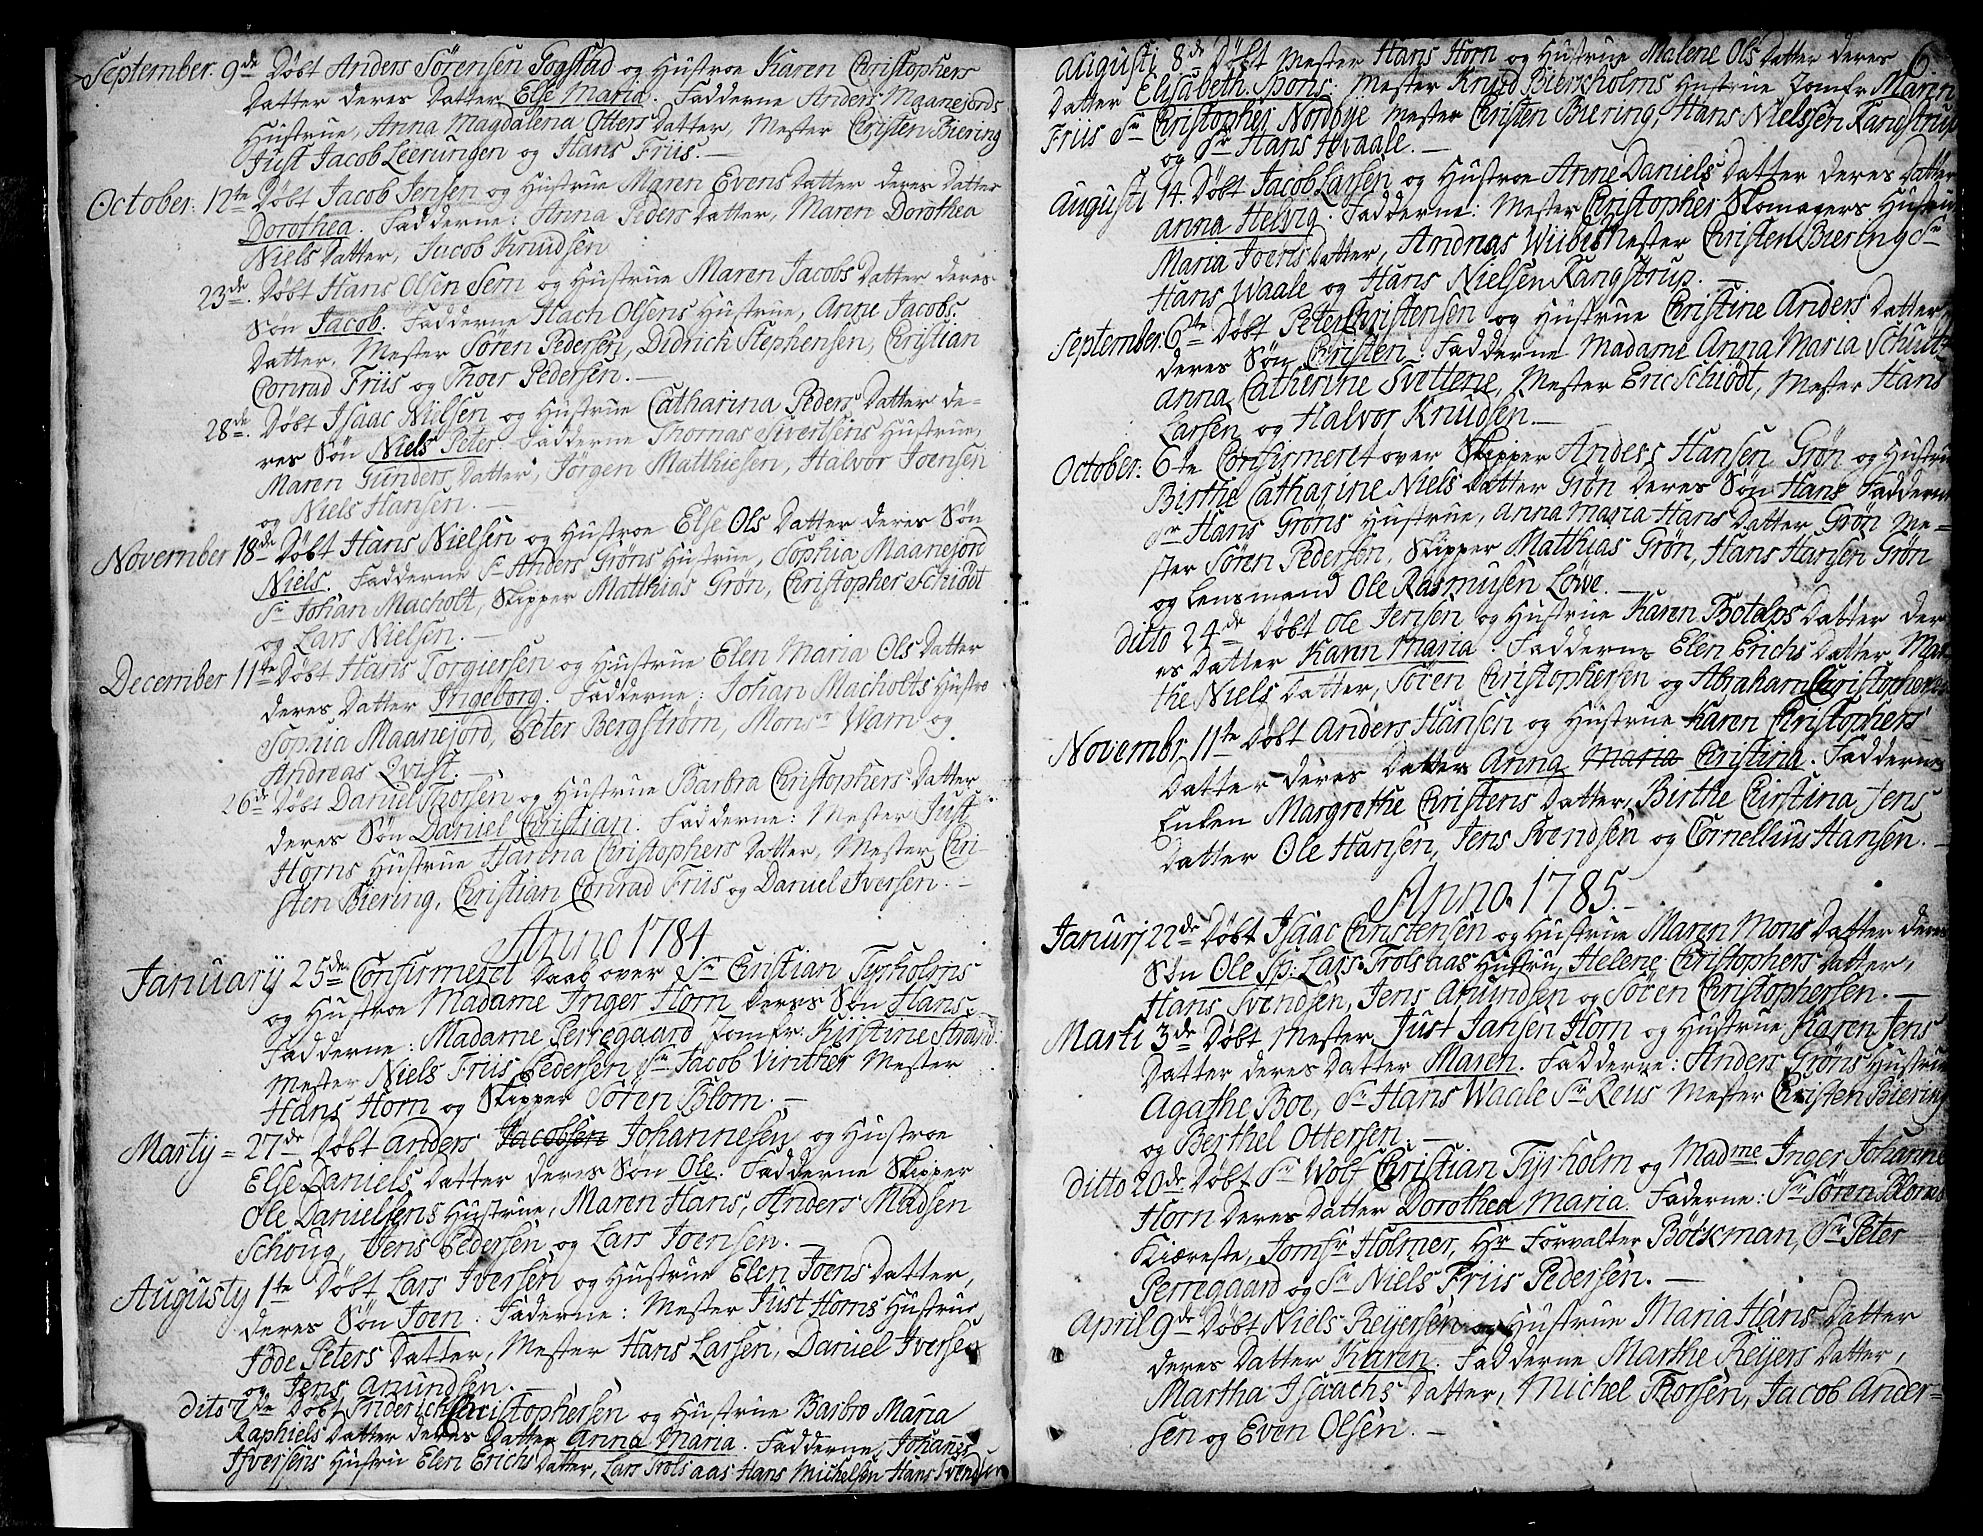 September. 9de Døbt Anders Sørensen Sogstad og Hustroe Karen Christophers
Datter deres Datter Else Maria. Fadderne Anders Maanejords
Hustrue, Anna Magdalena Otters Datter, Mester Christen Biering
Just Jacob Leerungen og Hans Friis.
October: 12te Døbt Jacob Jensen og Hustrue Maren Evens Datter deres Datter
Dorothea. Fadderne: Anna Peders Datter, Maren Dorothea
Niels Datter, Jacob Knudsen
23de. Døbt Hans Olsen Sem og Hustrue Maren Jacobs Datter deres
Søn Jacob. Fadderne Hach Olsens Hustrue, Anne Jacobs
Datter, Mester Søren Pedersen, Didrich Stephensen, Christian
Conrad Friis og Thoer Pedersen.
28de. Døbt Isaac Nielsen og Hustrue Catharina Peders Datter de-
res Søn Niels Peter. Fadderne Thomas Sivertsens Hustrue,
Maren Gunders Datter, Jørgen Matthiesen, Halvor Joensen
og Niels Hansen.
November 18de Døbt Hans Nielsen og Hustroe Else Ols Datter deres Søn
Niels. Fadderne Sr Anders Grøns Hustrue, Sophia Maanejord
Sr Johan Macholt, Skipper Matthias Grøn, Christopher Schiødt
og Lars Nielsen.
December 11te Døbt Hans Torgiersen og Hustrue Elen Maria Ols Datter
deres Datter Ingeborg. Fadderne: Johan Macholts Hustro
Sophia Maanejord, Peter Bergstrøm, Monsr Wam og
Andreas Qvist.
26de Døbt Daniel Thorsen og Hustrue Barbra Christophers Datter
deres Søn Daniel Christian. Fadderne: Mester Just
Horns Hustrue Karena Christophers Datter, Mester Chri-
sten Biering, Christian Conrad Friis og Daniel Iversen.
Anno 1784
Januarij 25de Confirmeret Daab over Sr Christian Tyrholms
og Hustroe Madame Inger Horn deres Søn Hans.
Fadderne: Madame Perregaard Jomfr. Kirstine Strand.
Mester Niels Friis Pedersen Sr Jacob Vinther Mester
Hans Horn og Skipper Søren Blom.
Martij = 27de Døbt Anders Jacobsen Johannesen og Hustroe
Else Daniels Datter deres Søn Ole. Fadderne Skipper
Ole Danielsens Hustrue, Maren Hans, Anders Madsen
Schoug, Jens Pedersen og Lars Joensen.
Augusty 1te Døbt Lars Iversen og Hustrue Elen Joens Datter,
deres Søn Joen. Faderne: Mester Just Horns Hustrue
Jøde Peters Datter, Mester Hans Larsen, Daniel Iversen
og Jens Anundsen.
dito 7de Døbt Friderich Christophersen og Hustrue Barbro Maria
Raphiels Datter deres Datter Anna Maria. Fadderne, Johannes
Ifversens Hustru Elen Erichs Datter, Lars Trolsaas Hans Michelsen Hans Svendsen
6.
Augusti 8de Døbt Mester Hans Horn og Hustrue Malene Ols Datter deres
Datter Elisabeth. Spons: Mester Knud Bierkholms Hustrue Jomfr Maren
Friis Sr Christopher Nordbye Mester Christen Biering, Hans Nielssen Kangstrup
og Sr Hans Hvaale.
Augusti 14. Døbt Jacob Larsen og Hustroe Anne Daniels Datter deres Datter
Anna Helvig. Fadderne: Mester Christopher Skomagers Hustrue
Maria Joens Datter, Andreas Wiibis Mester Christen Biering Sr
Hans Waale og Hans Nielsen Kangstrup.
September. 6te Døbt Peter Christensen og Hustrue Christine Anders Datter
deres Søn Christen. Fadderne Madame Anna Maria Schutt
Anna Catherine Svittene, Mester Eric Schiødt, Mester Hans
Larsen og Halvor Knudsen.
October: 6te Confirmeret over Skipper Anders Hansen Grøn og Hustrue
Birthe Catharine Niels Datter Grøn deres Søn Hans Fadderne
Sr Hans Grøns Hustrue, Anna Maria Hans Datter Grøn Me-
ster Søren Pedersen, Skipper Matthias Grøn, Hans Hansen Grøn
og Lensmand Ole Rasmusen Løwe.
ditto 24de Døbt Ole Jensen og Hustrue Karen Botolps Datter der
es Datter Karen Maria. Fadderne Elen Erichs Datter Mar
the Niels Datter, Søren Christophersen og Abraham Christophersen
Novembr 11te Døbt Anders Hansen og Hustrue Karen Christophers
Datter deres Datter Anna Maria Christina. Fadderne
Enken Margrethe Christens Datter, Birthe Cirstina Jens
Datter Ole Hansen, Jens Svendsen og Cornellius Hansen.
Anno. 1785.
Januarj 22de Døbt Isaac Christensen og Hustrue Maren Mons Datter deres
Søn Ole Sp: Lars Trolsaas Hustru, Helene Christophers Datter,
Hans Svendsen, Jens Anundsen og Søren Christophersen.
Marti 3de Døbt Mester Just Jansen Horn og Hustrue Karen Jens
Datter deres Datter Maren. Fadderne: Anders Grøns Hustrue
Agathe Boe, Sr Hans Waale Sr Reus Mester Christen Biering
og Berthel Ottersen.
ditto 20de Døbt Sr Wolf Christian Tyrholm og Madme Inger Johanne
Horn deres Datter Dorothea Maria. Faderne: Sr Søren Bloms
Kiæreste, Jomfr Holmer, Hr Forvalter Bøckman, Sr Peter
Perregaard og Sr Niels Friis Pedersen.
April 9de Døbt Niels Reyersen og Hustrue Maria Hans Datter
deres Datter Karen. Fadderne Marthe Reyers Datter,
Martha Isaachs Datter, Michel Thorsen, Jacob Ander-
sen og Even Olsen.